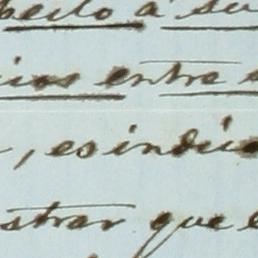 pecto á su
cios entre
, es indu
strar que